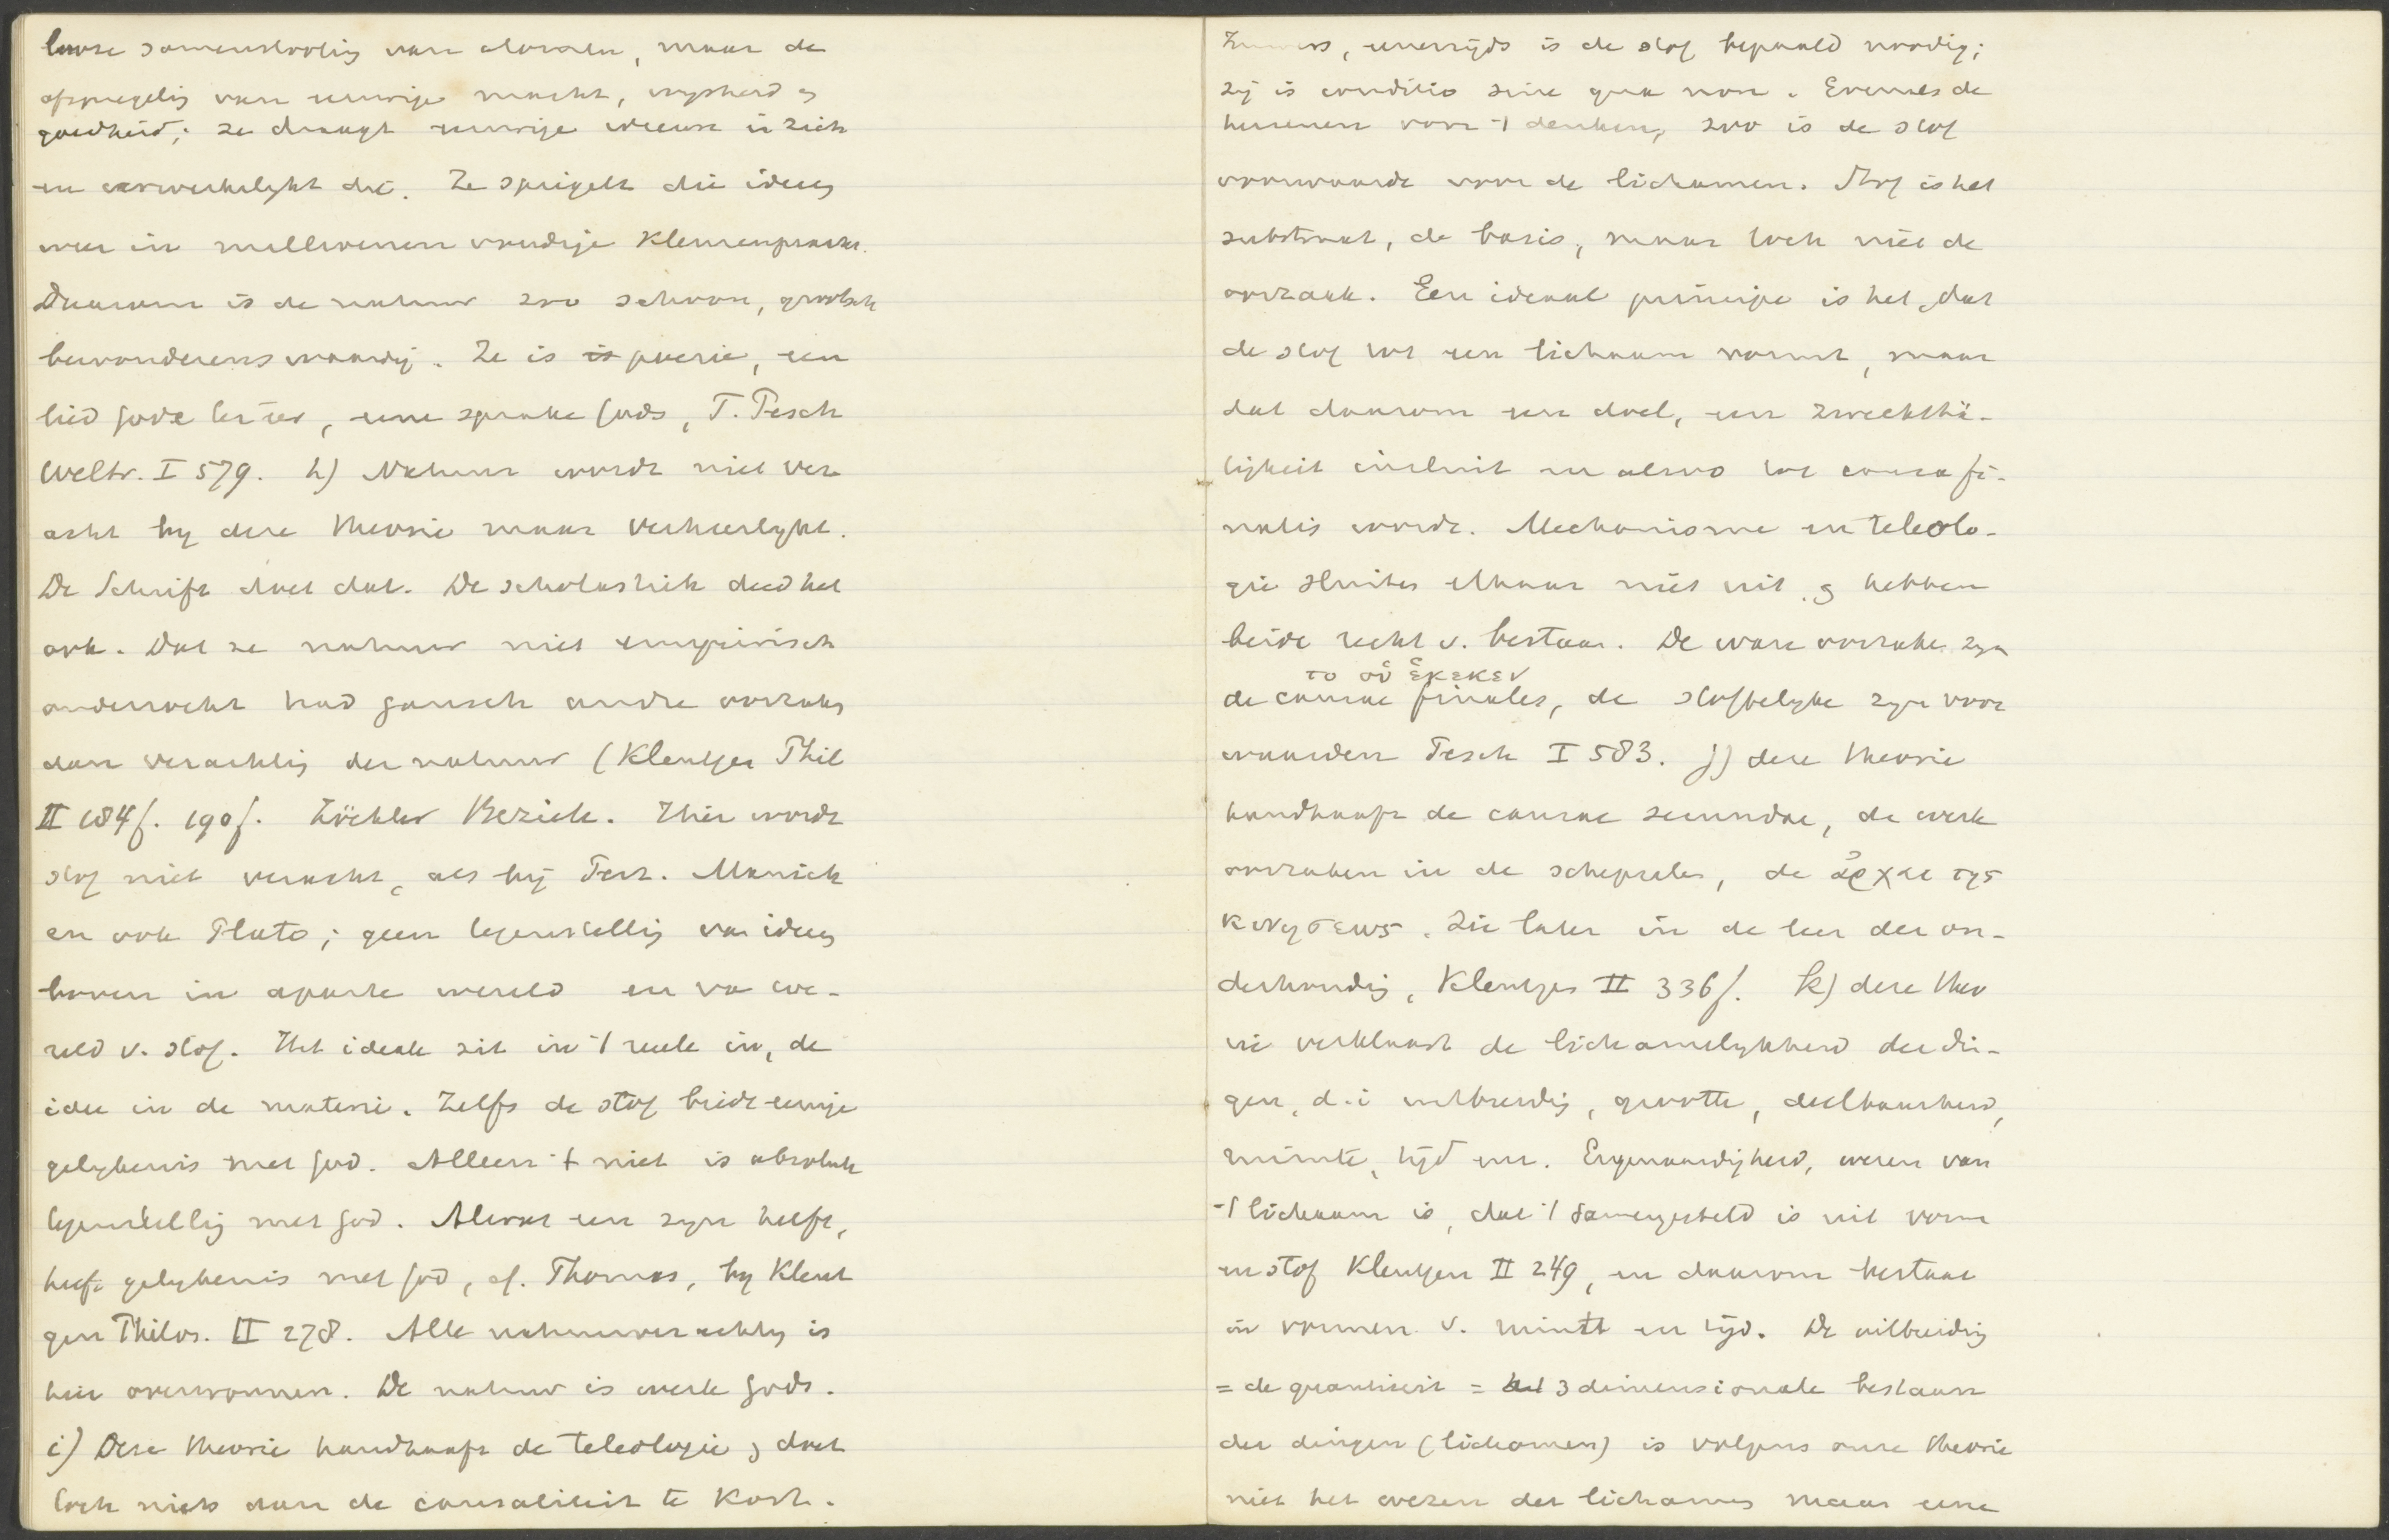 looze samenstelling van atomen, maar de
afspiegeling van eeuwige macht, wijsheid en
goedheid; ze draagt eeuwige ideeën in zich
en verwerkelijkt die. Ze spiegelt die ideen
weer in millioenenvoudige kleurenpracht.
Daarom is de natuur zoo schoon, grootsch
bewonderenswaardig. Ze is is poezie, een
lied Gode ter eer, eene sprake Gods, T. Pesch
Weltr. I 579. h) Natuur wordt niet ver
acht by deze theorie maar verheerlykt.
De Schrift doet dat. De scholastiek deed het
ook. Dat ze natuur niet empirisch
onderzocht had gansch andre oorzaken
dan verachting der natuur (Kleutgen Phil
II 184f. 190f. Zöckler Bezieh. Hier wordt
stof niet veracht, als bij Tert. Manich
en ook Plato; geen tegenstelling van ideen
boven in aparte wereld en van we-
reld v. stof. Het ideale zit in 't reele in, de
idee in de materie. Zelfs de stof biedt eenige
gelykenis met God. Alleen 't niet is absolute
tegenstelling met God. Al wat een zyn heeft,
heeft gelykenis met God, cf. Thomas, by Kleut
gen Philos. II 278. Alle natuurverachting is
hier overwonnen. De natuur is werk Gods.
i) Deze theorie handhaaft de teleologie en doet
toch niets aan de causaliteit te kort.
Immers, eenerzijds is de stof bepaald noodig;
zij is conditio sine qua non. Evenals de
hersenen voor 't denken, zoo is de stof
voorwaarde voor de lichamen. Stof is het
substraat, de basis, maar toch niet de
oorzaak. Een ideaal principe is het, dat
de stof tot een lichaam vormt, maar
dat daarom een doel, een Zweckthä-
tigkeit insluit en alzoo tot causa fi-
nalis wordt. Mechanisme en teleolo-
gie sluiten elkaar niet uit, en hebben
beide recht v. bestaan. De ware oorzaken zyn
το οὑ ἑνεκεν
de causae finales, de stoffelyke zyn voor
waarden Pesch I 583. j) deze theorie
handhaaft de causae secundae, de werk
oorzaken in de schepselen, de ἀρχαι της
κινησεως. Zie later in de leer der on-
derhouding, Kleutgen II 336f. k) deze theo
rie verklaart de lichamelykheid der din-
gen, d.i uitbreiding, grootte, deelbaarheid,
ruimte, tijd enz. Eigenaardigheid, wezen van
't lichaam is, dat 't samengesteld is uit vorm
en stof Kleutgen II 249, en daarom bestaat
in vormen v. ruimte en tijd. De uitbreiding
= de quantiteit = het 3 dimensionale bestaan
der dingen (lichamen) is volgens onze theorie
niet het wezen des lichaams maar eene